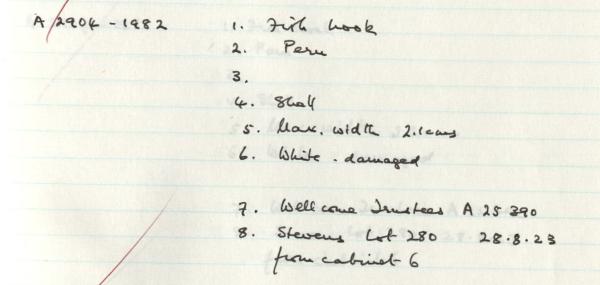 A 2904 - 1982 1. Fish hook
2. Peru
3.
4. Shell
5. Max. width 2.1cms
6. White - damaged
7. Wellcome Trustees A 25390
8. Stevens Lot 280 28.8.23
from cabinet 6